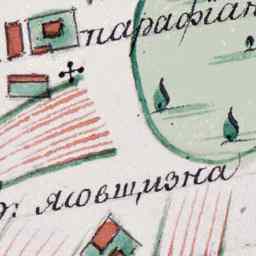 парафіан
ясовщизна